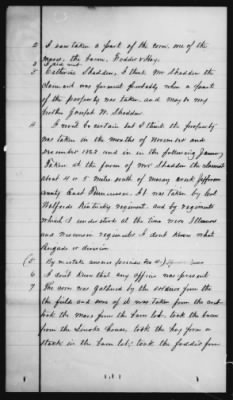 2 I saw taken a part of the corn, one of the
mares, the bacon, Fodder & Hay.
3 I did not
3 Catherine Shadden, I think Mr Shadden the
claimant was present probably when a part
of the property was taken and may be my
brother Joseph W. Shadden
4 I wont be certain but I think the property
was taken in the months of November and
December 1863 and or in the following January,
Taken at the farm of Mr Shadden the claimant
about 4 or 5 miles south of mossy creek Jefferson
county East Tennessee. It was taken by Col
Wolfords Kentucky regiment, and by regiments
which I understood at the time were Illinois
and Wisconsin regiments I dont know what
Brigade or division
(5 By mistake answer
6 I dont know that any officer was present
7 The corn was gathered by the soldiers from the
the field and some of it was taken from the
took the mare from the barn lot, took the bacon
from the Smoke house, took the hay from a
stack in the barn lot, took the fodder from